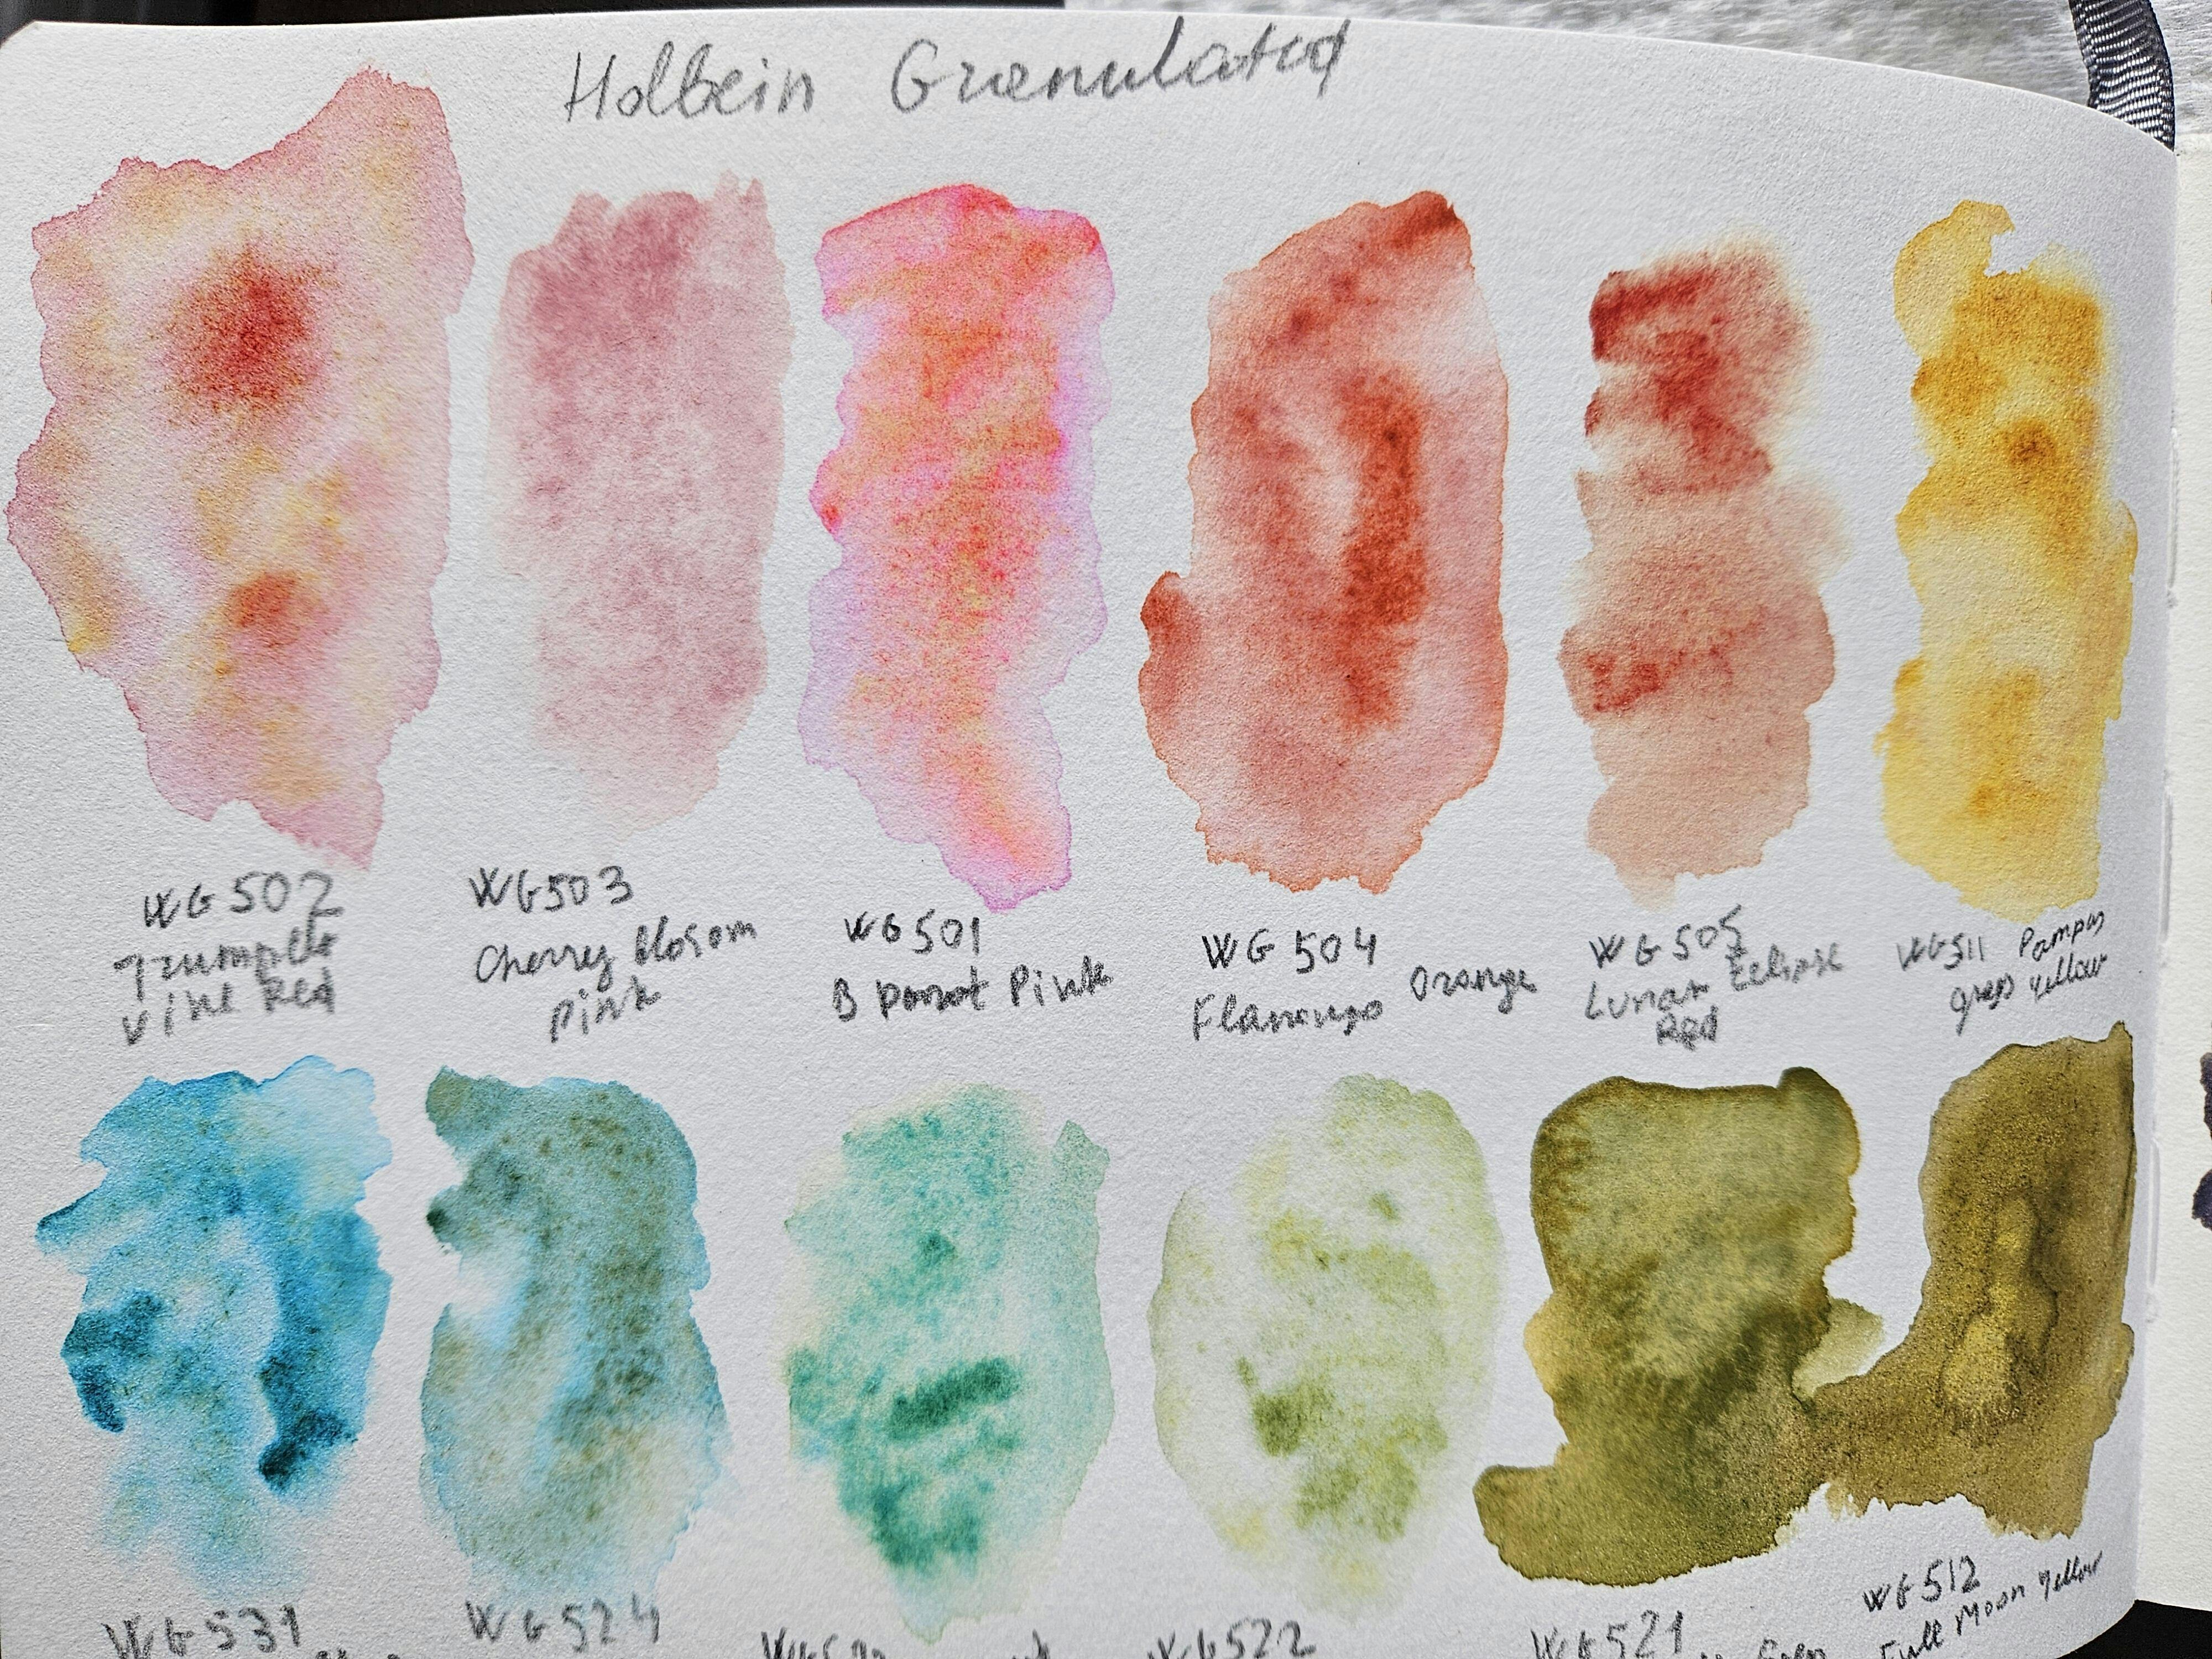 Holbein Granulated
WG 502
Trumpete
Vine Red
WG503
Cherry blosom
Pink
WG501
B parrot Pink
WG 504
Flamingo Orange
WG 505
Lunar Eclipse
Red
WG511 Pampas
grass yellow
WG531
WG524
WG522
WG521
WG512
Full Moon Yellow